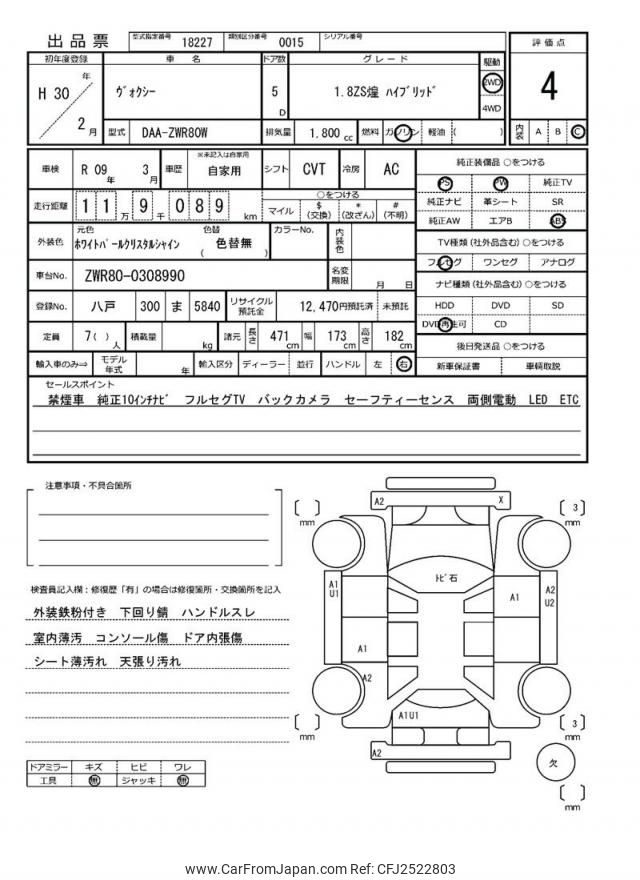 出品票
型式指定番号 18227 類別区分番号 0015 シリアル番号
初年度登録 車名 ドア数 グレード 駆動 評価点
H 30 年 2 月
ヴォクシー
5 D
1.8ZS煌 ハイブリッド
2WD
4WD
4
型式 DAA-ZWR80W 排気量 1,800 cc 燃料 ガソリン 軽油 ( )
内装 A B C
車検 R 09 年 3 月 車歴 ※未記入は自家用 自家用 シフト CVT 冷房 AC
走行距離 1 1 万 9 千 0 8 9 km
○をつける
マイル $(交換) *(改ざん) #(不明)
外装色 元色 ホワイトパールクリスタルシャイン 色替 ( 色替無 ) カラーNo. 内装色
車台No. ZWR80-0308990 名変期限 月 日
登録No. 八戸 300 ま 5840 リサイクル預託金 12,470円預託済 未預託
定員 7( ) 人 積載量 kg 諸元 長さ 471 cm 幅 173 cm 高さ 182 cm
輸入車のみ⇒ モデル年式 年 輸入区分 ディーラー 並行 ハンドル 左 右
純正装備品 ○をつける
PS PW 純正TV
純正ナビ 革シート SR
純正AW エアB ABS
TV種類 (社外品含む) ○をつける
フルセグ ワンセグ アナログ
ナビ種類 (社外品含む) ○をつける
HDD DVD SD
DVD再生可 CD
後日発送品 ○をつける
新車保証書 車輌取説
セールスポイント
禁煙車 純正10インチナビ フルセグTV バックカメラ セーフティーセンス 両側電動 LED ETC
注意事項・不具合箇所
検査員記入欄：修復歴「有」の場合は修復箇所・交換箇所を記入
外装鉄粉付き 下回り錆 ハンドルスレ
室内薄汚 コンソール傷 ドア内張傷
シート薄汚れ 天張り汚れ
ドアミラー キズ ヒビ ワレ
工具 無 ジャッキ 無
A2 X
[ ] mm
[ 3 ] mm
トビ石
A1 U1
A1
A2 U2
A1
A2
A1U1
[ ] mm
[ 3 ] mm
A2
欠
[ ] mm
www.CarFromJapan.com Ref: CFJ2522803